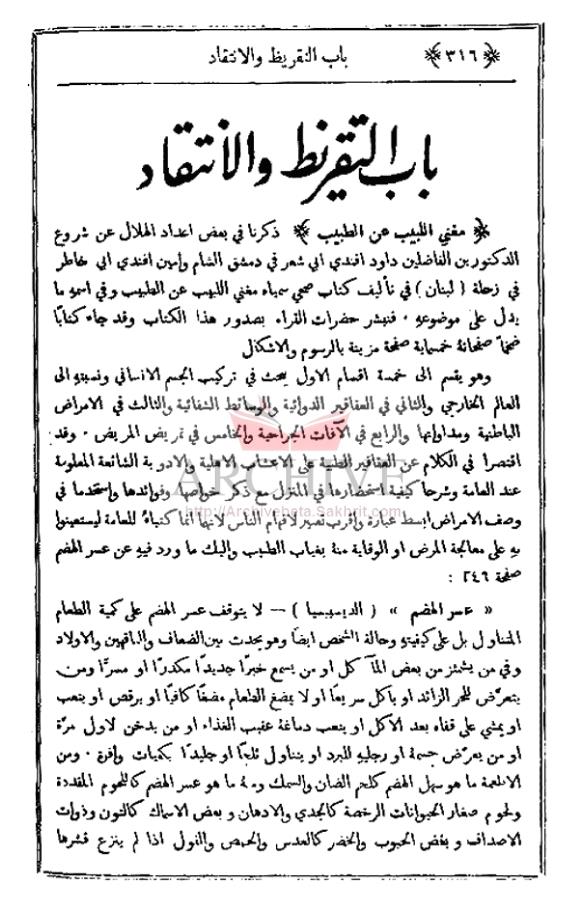 باب التقريظ والانتقاد ﴿٣١٦﴾
باب التقريظ والانتقاد
﴿ مغني اللبيب عن الطبيب ﴾ ذكرنا في بعض اعداد الهلال عن شروع
الدكتورين الفاضلين داود افندي ابي شعر في دمشق الشام وامين افندي ابي خاطر
في زحلة (لبنان) في تأليف كتاب صحي سمياه مغني اللبيب عن الطبيب وفي اسمهِ ما
يدل على موضوعهِ ٠ فنبشر حضرات القراء بصدور هذا الكتاب وقد جاء كتابًا
ضخمًا صفحاتهُ خمسماية صفحة مزينة بالرسوم والاشكال
وهو يقسم الى خمسة اقسام الاول يبحث في تركيب الجسم الانساني ونسبتهِ الى
العالم الخارجي والثاني في العقاقير الدوائية والوسائط الشفائية والثالث في الامراض
الباطنية ومداواتها والرابع في الآفات الجراحية والخامس في تمريض المريض ٠ وقد
اقتصرا في الكلام عن العقاقير الطبية على الاعشاب الاهلية والادوية الشائعة المعلومة
عند العامة وشرحا كيفية استحضارها في المنزل مع ذكر خواصها وفوائدها واستخدما في
وصف الامراض ابسط عبارة واقرب تعبير لافهام الناس لانهما انما كتباهُ للعامة ليستعينوا
بهِ على معالجة المرض او الوقاية منهُ بغياب الطبيب واليك ما ورد فيهِ عن عسر الهضم
صفحة ٢٤٦ :
« عسر الهضم » (الديسبيسيا) — لا يتوقف عسر الهضم على كمية الطعام
المتناول بل على كيفيتهِ وحالة الشخص ايضًا وهو يحدث بين الضعاف والناقهين والاولاد
وفي من يشمئز من بعض المآكل او من يسمع خبرًا جديدًا مكدرًا او مسرًّا ومن
يتعرَّض للحر الزائد او يأكل سريعًا او لا يمضغ الطعام مضغًا كافيًا او يرقص او يتعب
او يمشي على قفاه بعد الاكل او يتعب دماغهُ عقيب الغذاء او من يدخن لاول مرَّة
او من يعرّض جسمهُ او رجليهِ للبرد او يتناول ثلجًا او جليدًا بكميات وافرة ٠ ومن
الاطعمة ما هو سهل الهضم كلحم الضان والسمك ومنهُ ما هو عسر الهضم كاللحوم المقددة
ولحوم صغار الحيوانات الرخصة كالجدي والادهان وبعض الاسماك كالتون وذوات
الاصداف وبعض الحبوب والخضر كالعدس والحمص والفول اذا لم ينزع قشرها
ARCHIVE
http://Archivebeta.Sakhrit.com